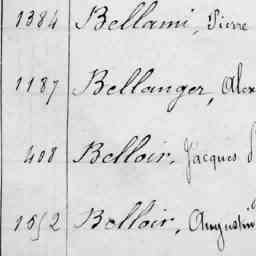 1384 Bellami, Pierre
1187 Bellanger, Alex
408 Belloir, Jacques
1052 Belloir, Augustin